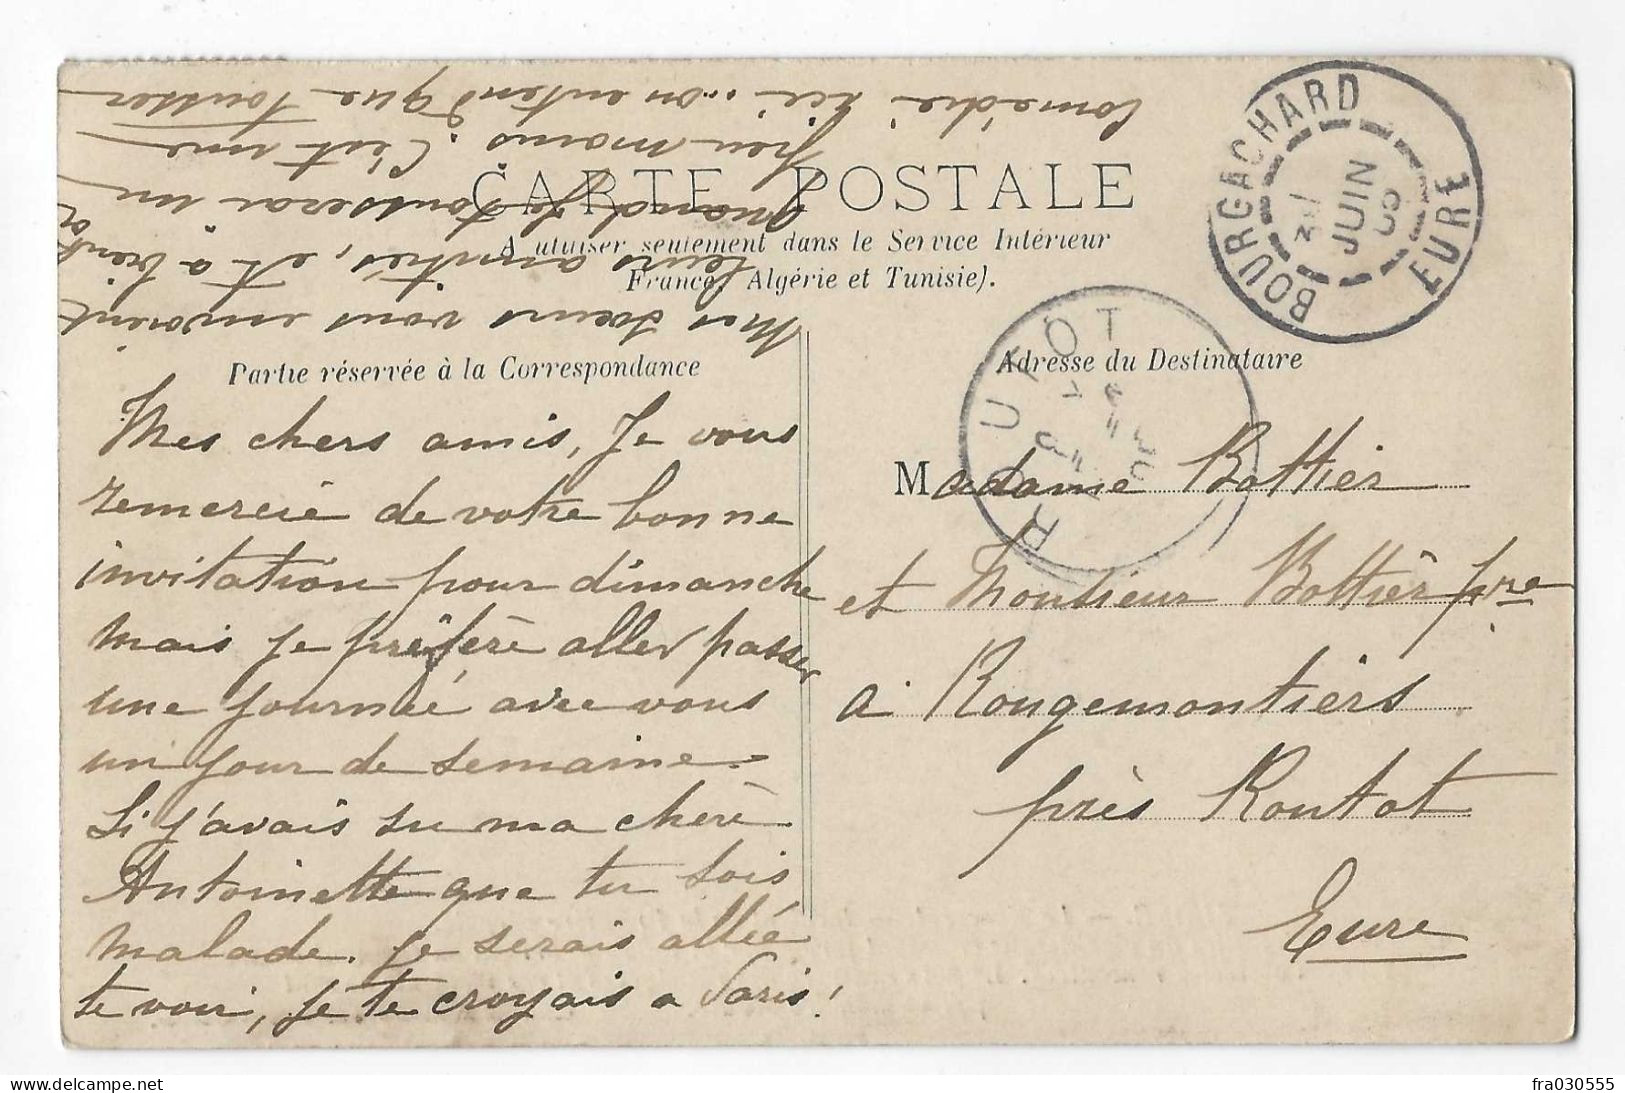 CARTE POSTALE
A utiliser seulement dans le Service Intérieur
France, Algérie et Tunisie).
Partie réservée à la Correspondance
Adresse du Destinataire
Mes chers amis, Je vous
remercie de votre bonne
invitation pour dimanche
mais je préfère aller passer
une journée avec vous
un jour de semaine.
Si j'avais su ma chère
Antoinette que tu sois
malade. je serais allée
te voir, je te croyais a Paris!
Mes sœurs vous envoient
leurs amitiés, et à bientôt
quand je tousserai un
peu moins. C'est une
comédie ici.. on entend que tousser
Madame Bottier
et Monsieur Bottier père
a Rougemontiers
près Routot
Eure
BOURGACHARD
EURE
JUIN
ROUTOT
fra030555